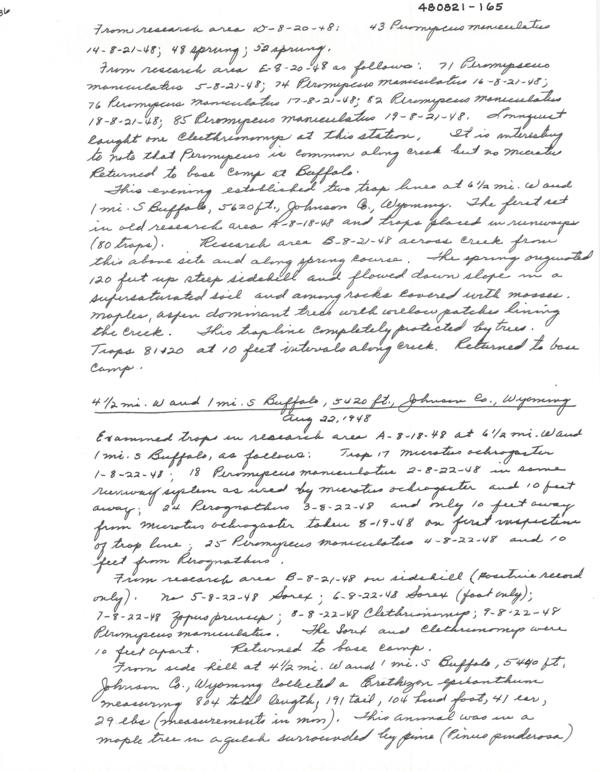 480821-165
From research area D-8-20-48: 43 Peromyscus maniculatus
14-8-21-48; 48 sprung; 52 sprung.
From research area E-8-20-48 as follows: 71 Peromyscus
maniculatus 5-8-21-48; 74 Peromyscus maniculatus 16-8-21-48;
76 Peromyscus maniculatus 17-8-21-48; 82 Peromyscus maniculatus
18-8-21-48; 85 Peromyscus maniculatus 19-8-21-48. Lonnquist
caught one Clethrionomys at this station. It is interesting
to note that Peromyscus is common along creek but no Microtus
Returned to base camp at Buffalo.
This evening established two trap lines at 6 1/2 mi. W and
1 mi. S Buffalo, 5620 ft., Johnson Co., Wyoming. The first set
in old research area A-8-18-48 and traps placed in runways
(80 traps). Research area B-8-21-48 across creek from
this above site and along spring course. The spring originated
120 feet up steep sidehill and flowed down slope in a
supersaturated soil and among rocks covered with mosses.
Maples, aspen dominant trees with willow patches lining
the creek. This trapline completely protected by trees.
Traps 81-120 at 10 feet intervals along creek. Returned to base
camp.
4 1/2 mi. W and 1 mi. S Buffalo, 5420 ft., Johnson Co., Wyoming
Aug 22, 1948
Examined traps in research area A-8-18-48 at 6 1/2 mi. W and
1 mi. S Buffalo, as follows: Trap 17 Microtus ochrogaster
1-8-22-48; 18 Peromyscus maniculatus 2-8-22-48 in same
runway system as used by Microtus ochrogaster and 10 feet
away; 24 Perognathus 3-8-22-48 and only 10 feet away
from Microtus ochrogaster taken 8-19-48 on first inspection
of trap line; 25 Peromyscus maniculatus 4-8-22-48 and 10
feet from Perognathus.
From research area B-8-21-48 on sidehill (positive record
only). no 5-8-22-48 Sorex; 6-8-22-48 Sorex (foot only);
7-8-22-48 Zapus princeps; 8-8-22-48 Clethrionomys; 9-8-22-48
Peromyscus maniculatus. The Sorex and Clethrionomys were
10 feet apart. Returned to base camp.
From side hill at 4 1/2 mi. W and 1 mi. S Buffalo, 5440 ft.
Johnson Co., Wyoming collected a Erethizon epixanthum
measuring 804 total length, 191 tail, 104 hind foot, 41 ear,
29 lbs (measurements in mm). This animal was in a
maple tree in a gulch surrounded by pine (Pinus ponderosa)